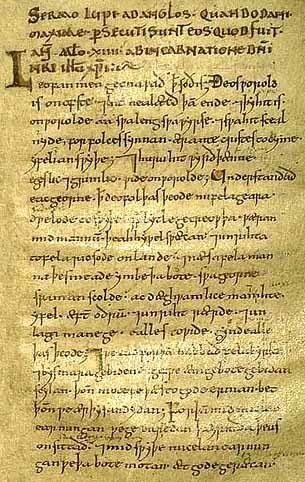 SERMO LUPI AD ANGLOS QUANDO DANI
MAXIME PERSECUTI SUNT EOS QUOD FUIT
AB INCARNATIONE DNI
Leofan men gecnawað ꝥ soð is ðeos worold
is on ofste ⁊ hit nealæcð þam ende ⁊ þy hit is
on worolde aa swa leng swa wyrse ⁊ swa hit sceal
nyde for folces synnan
yfelian swyþe ⁊ huru hit wyrð þænne
egeslic ⁊ grimlic wide on worolde Understandað
eac georne ꝥ deofol þas þeode nu fela geara
dwelode to swyþe ⁊ ꝥ lytle getreowþa wæran
mid mannum þeah hy wel spæcan ⁊ unrihta
to fela ricsode on lande ⁊ næs a fela man
na þe smeade ymbe þa bote swa georne
swa man scolde ac dæghwamlice man ihte
yfel æft̄ oðrum ⁊ unriht rærde ⁊ un
laga manege ealles to wide gynd ealle
þas þeode
⁊ bysmara gebiden ænige bote gebidan
scylan þon̄ mote we þæs to gode earnian bet
þon̄ we ær þysan dydan mid miclan
earnungan we geearnedan þa yrmða þe us
onsittað ⁊ mid swyþe micelan earnun
gan we þa bote motan æt gode geræcan